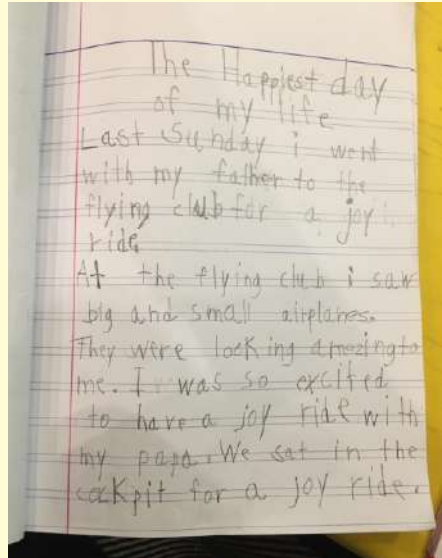 The Happiest day
of my life
Last Sunday i went
with my father to the
flying club for a joy
ride.
At the flying club i saw
big and small airplanes.
They were looking amezing to
me. I was so excited
to have a joy ride with
my papa. We sat in the
cockpit for a joy ride.